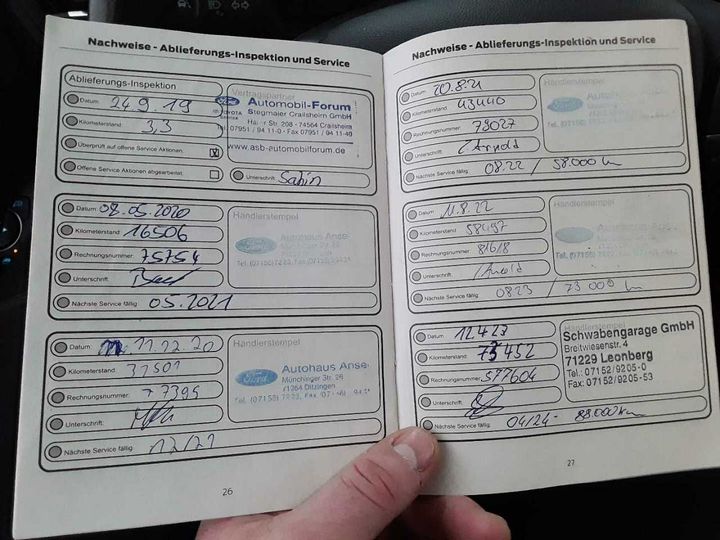 Nachweise - Ablieferungs-Inspektion und Service
Ablieferungs-Inspektion
Datum: 24.9.19
Kilometerstand: 3,3
Überprüft auf offene Service Aktionen. X
Offene Service Aktionen abgearbeitet.
Vertragspartner
Ford Automobil-Forum
Stegmaier Crailsheim GmbH
Haller Str. 208 - 74564 Crailsheim
Tel. 07951 / 94 11-0 - Fax 07951 / 94 11-40
www.asb-automobilforum.de
Unterschrift:
Datum: 08.05.2020
Kilometerstand: 16506
Rechnungsnummer: 75754
Unterschrift:
Nächste Service fällig: 05.2021
Händlerstempel
Ford Autohaus Ansel
Datum: 11.12.20
Kilometerstand: 31501
Rechnungsnummer: 77395
Unterschrift:
Nächste Service fällig: 12/21
Händlerstempel
Ford Autohaus Anse
Münchinger Str.
71254 Ditzingen
26
Nachweise - Ablieferungs-Inspektion und Service
Datum: 20.8.21
Kilometerstand: 43440
Rechnungsnummer: 79027
Unterschrift: Arnold
Nächste Service fällig: 08.22 / 58.000 km
Händlerstempel
Ford Autohaus
Datum: 11.8.22
Kilometerstand: 58497
Rechnungsnummer: 81618
Unterschrift: Arnold
Nächste Service fällig: 08.23 / 73 000 km
Händlerstempel
Ford
Datum: 12.4.23
Kilometerstand: 73452
Rechnungsnummer: 577604
Unterschrift:
Nächste Service fällig: 04/24 - 88.000 km
Händlerstempel
Schwabengarage GmbH
Breitwiesenstr. 4
71229 Leonberg
Tel.: 07152/9205-0
Fax: 07152/9205-53
27